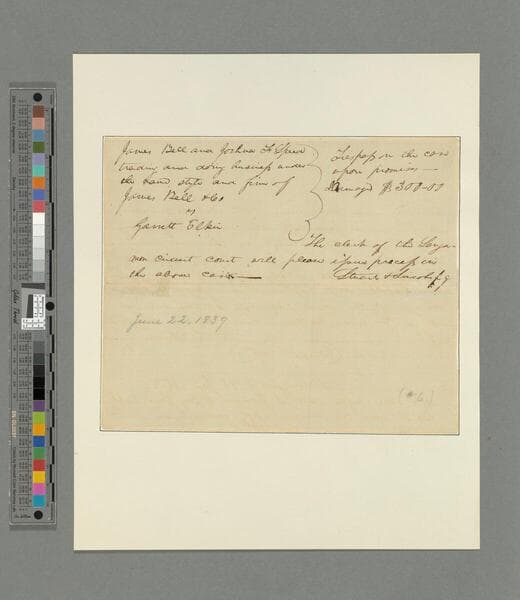 James Bell and Joshua F Speed
trading and doing business under
the name style and firm of
James Bell & Co
vs
Garrett Elkin
Trespass on the case
upon promises
Damage $300-00
The clerk of the Sanga-
mon circuit court will please issue process in
the above case
Stuart & Lincoln p q
June 22, 1839
(#6)